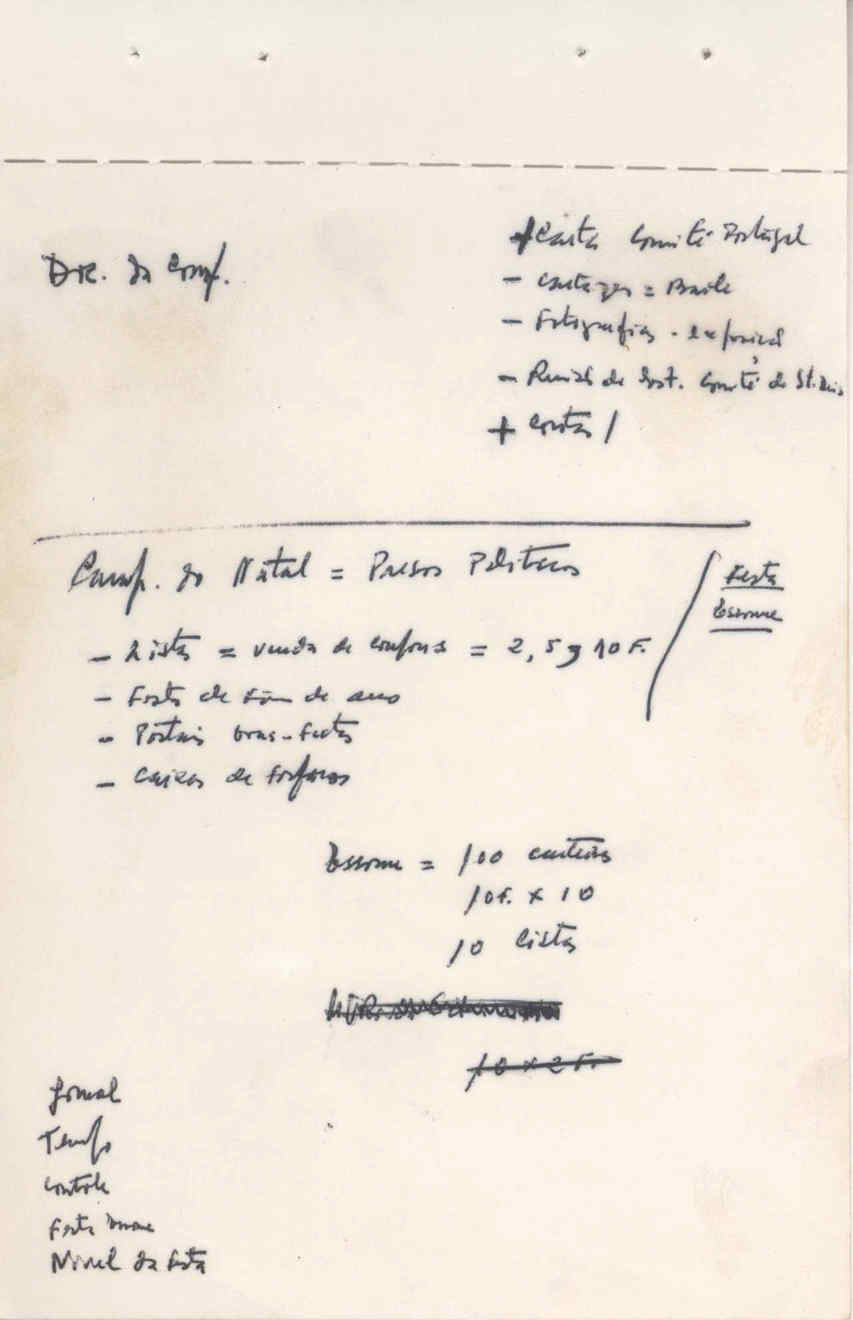 Doc. da Conf.
+ Carta Comité Portugal
- Cartazes = Baile
- Fotografias - exposição
- Reunião de Comité de St. Denis
+ Contas /
Camp. do Natal = Presos Politicos
- Listas = venda de coupons = 2, 5 e 10 F.
- Festa de Fim de ano
- Postais boas-festas
- Caixas de fosforos
Festa
Essonne
Essonne = 100 carteiras
10 F. x 10
10 listas
10 x 2 F.
Jornal
Tempo
Controle
Festa Essonne
Nivel da Festa